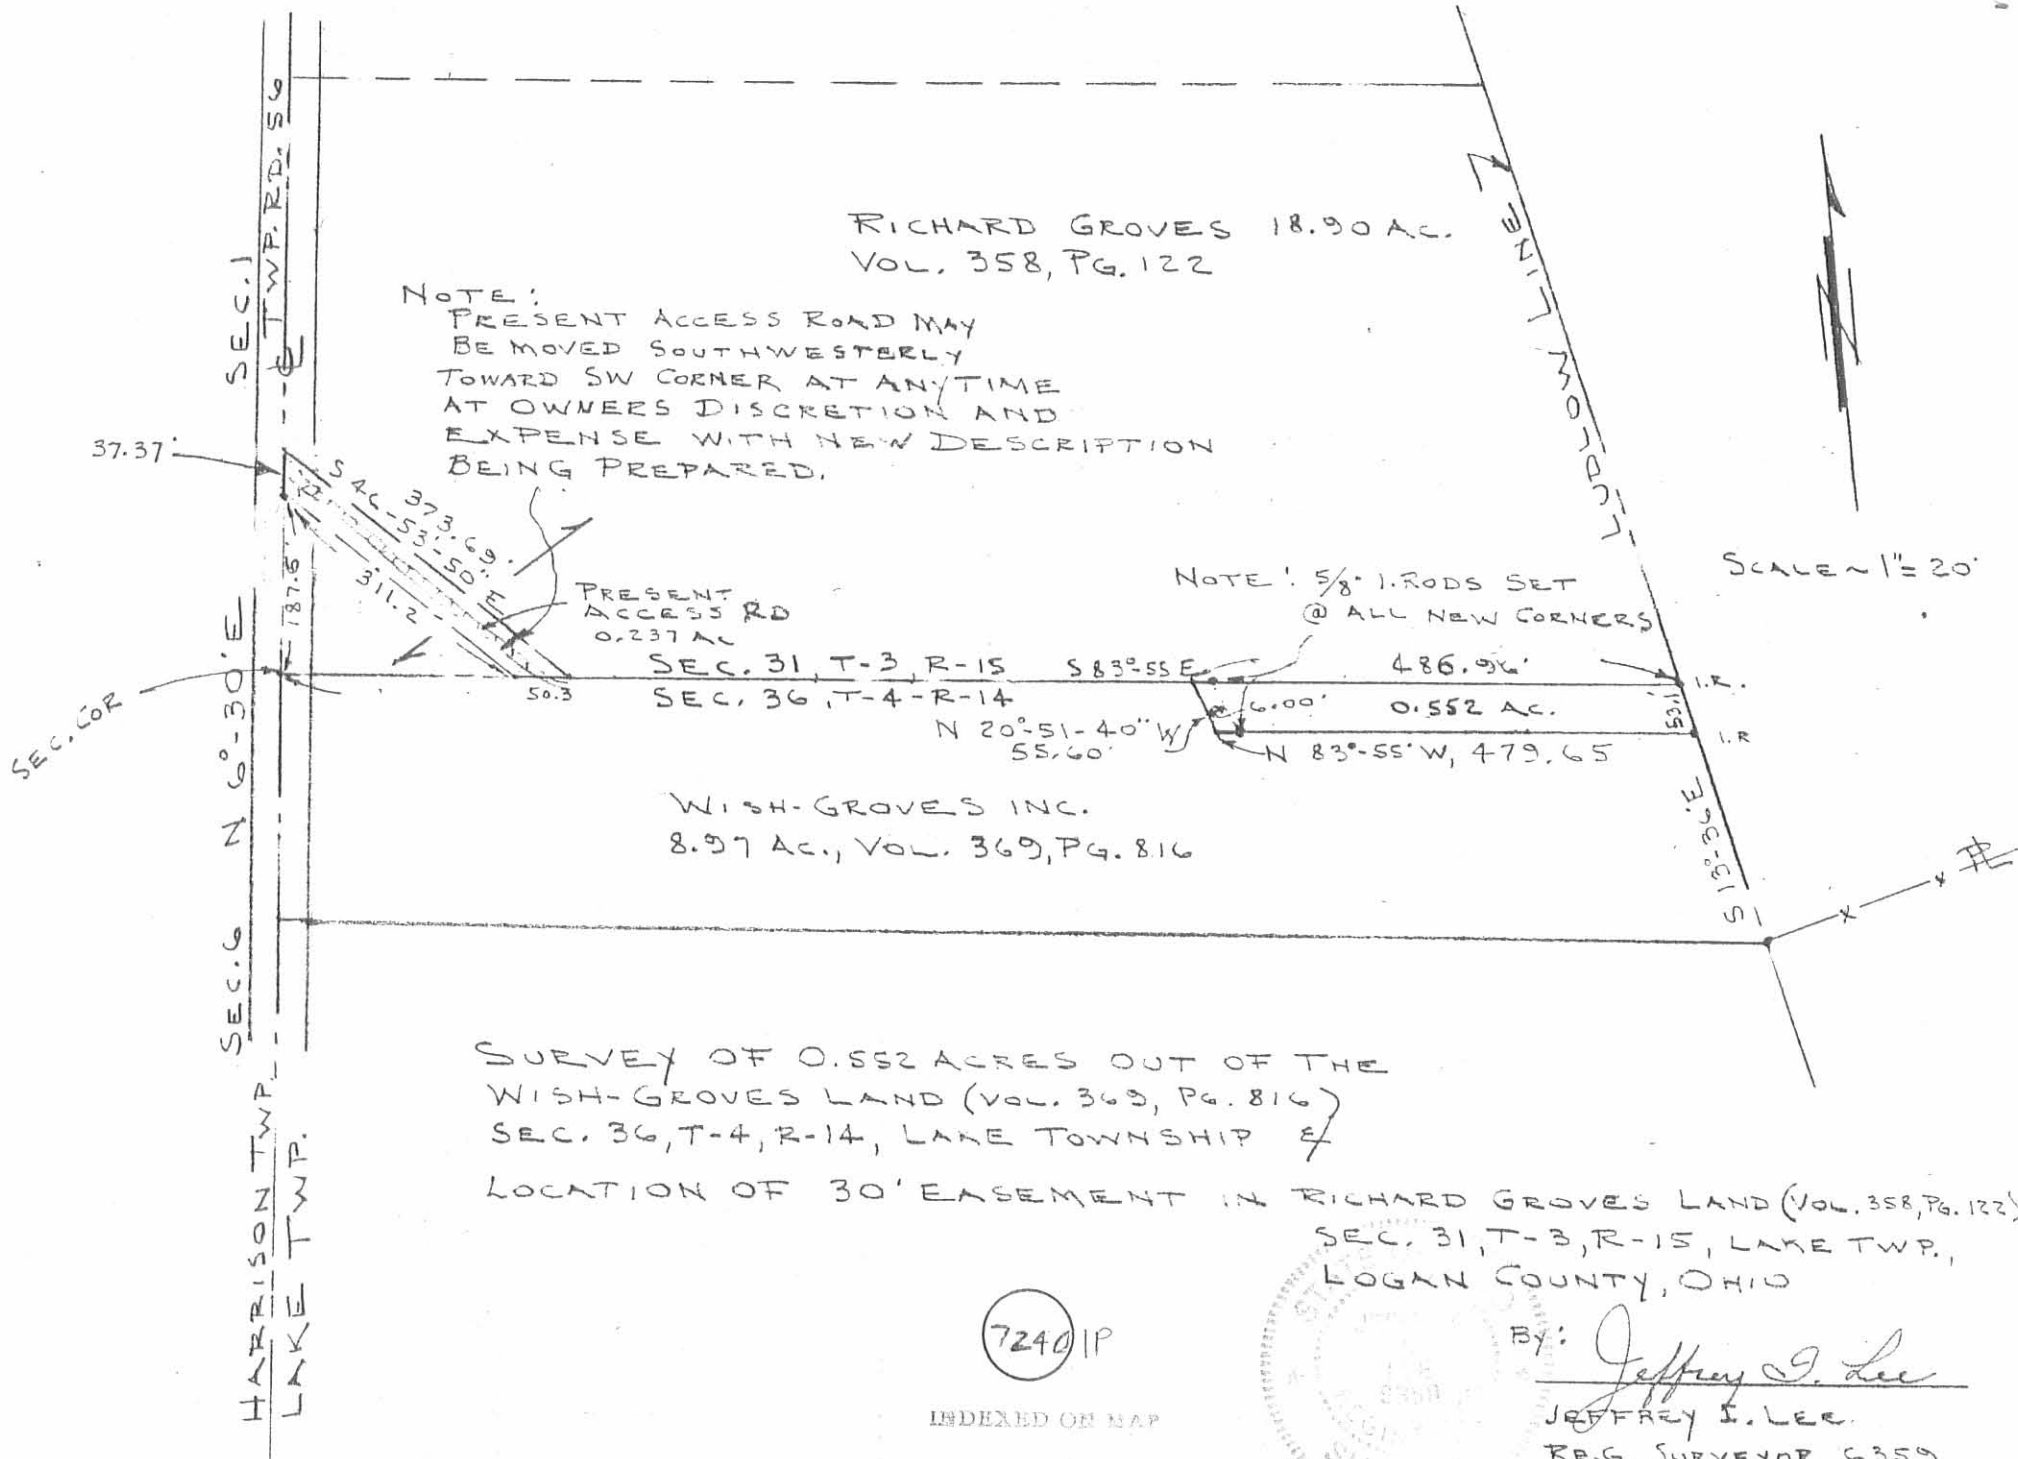 SEC. 1
TWP. RD. 56
RICHARD GROVES 18.90 AC.
VOL. 358, PG. 122
NOTE:
PRESENT ACCESS ROAD MAY
BE MOVED SOUTHWESTERLY
TOWARD SW CORNER AT ANYTIME
AT OWNERS DISCRETION AND
EXPENSE WITH NEW DESCRIPTION
BEING PREPARED.
LUDLOW LINE
N
37.37'
S 46-53'-50" E
373.69'
311.2
187.5'
PRESENT
ACCESS RD
0.237 AC
NOTE: 5/8" I. RODS SET
@ ALL NEW CORNERS
SCALE ~ 1" = 20'
SEC. COR
N 6°-30'E
50.3
SEC. 31, T-3, R-15
SEC. 36, T-4-R-14
S 83°-55 E
486.96'
I.R.
6.00'
0.552 AC.
53.1'
I.R
N 20°-51-40" W
55.60'
N 83°-55' W, 479.65
WISH-GROVES INC.
8.97 AC., VOL. 369, PG. 816
S 13°-36'E
SEC. 6
HARRISON TWP.
LAKE TWP.
SURVEY OF 0.552 ACRES OUT OF THE
WISH-GROVES LAND (VOL. 369, PG. 816)
SEC. 36, T-4, R-14, LAKE TOWNSHIP &
LOCATION OF 30' EASEMENT IN RICHARD GROVES LAND (VOL. 358, PG. 122)
SEC. 31, T-3, R-15, LAKE TWP.,
LOGAN COUNTY, OHIO
By:
Jeffrey I. Lee
JEFFREY I. LEE
REG SURVEYOR 6359
INDEXED ON MAP